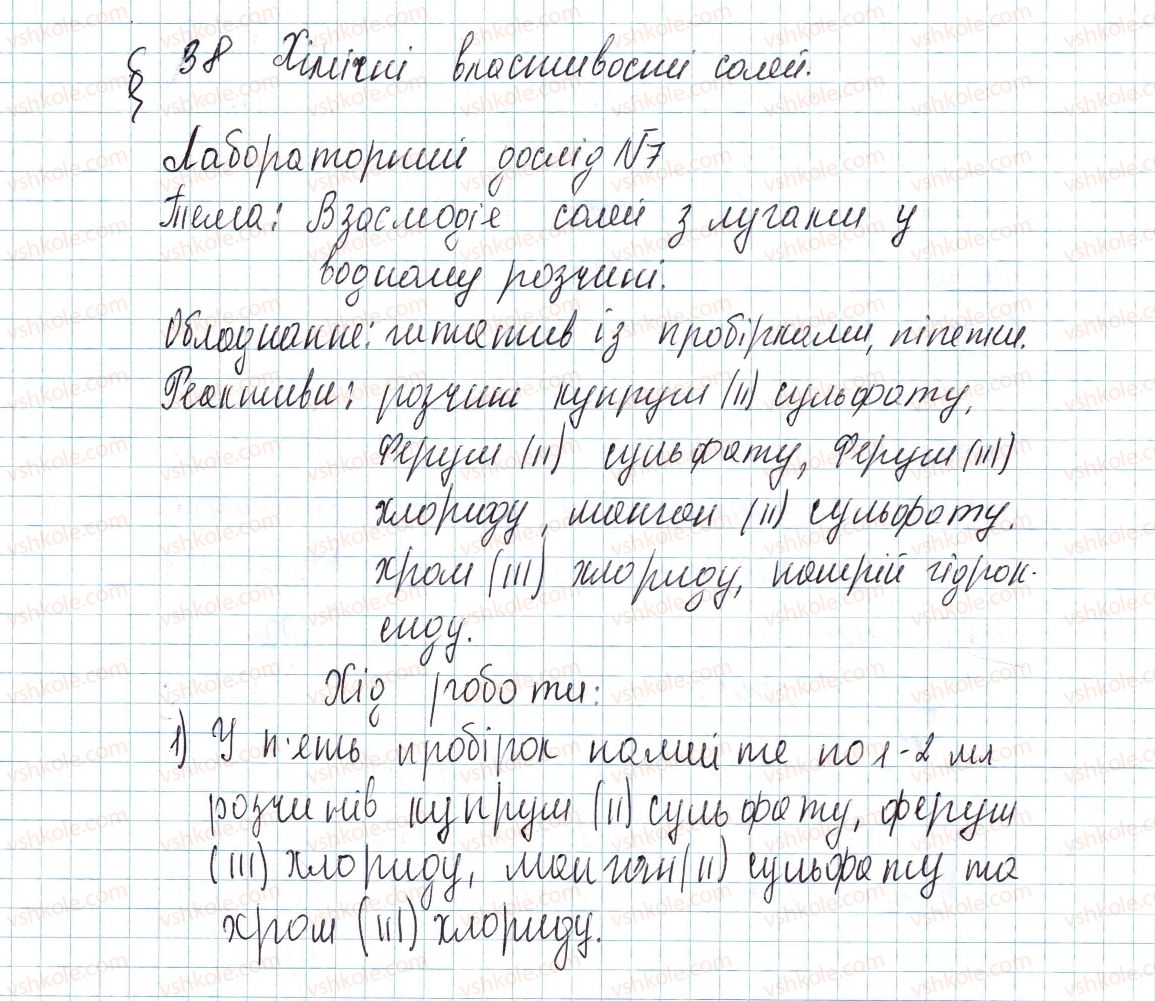 § 38 Хімічні властивості солей.
Лабораторний дослід №7
Тема: Взаємодія солей з лугами у
водному розчині.
Обладнання: штатив із пробірками, піпетки.
Реактиви: розчини купрум (II) сульфату,
Ферум (II) сульфату, Ферум (III)
хлориду, манган (II) сульфату,
хром (III) хлориду, натрій гідрок-
сиду.
Хід роботи:
1) У п'ять пробірок налийте по 1-2 мл
розчинів купрум (II) сульфату, ферум
(III) хлориду, манган (II) сульфату та
хром (III) хлориду.
vshkole.com